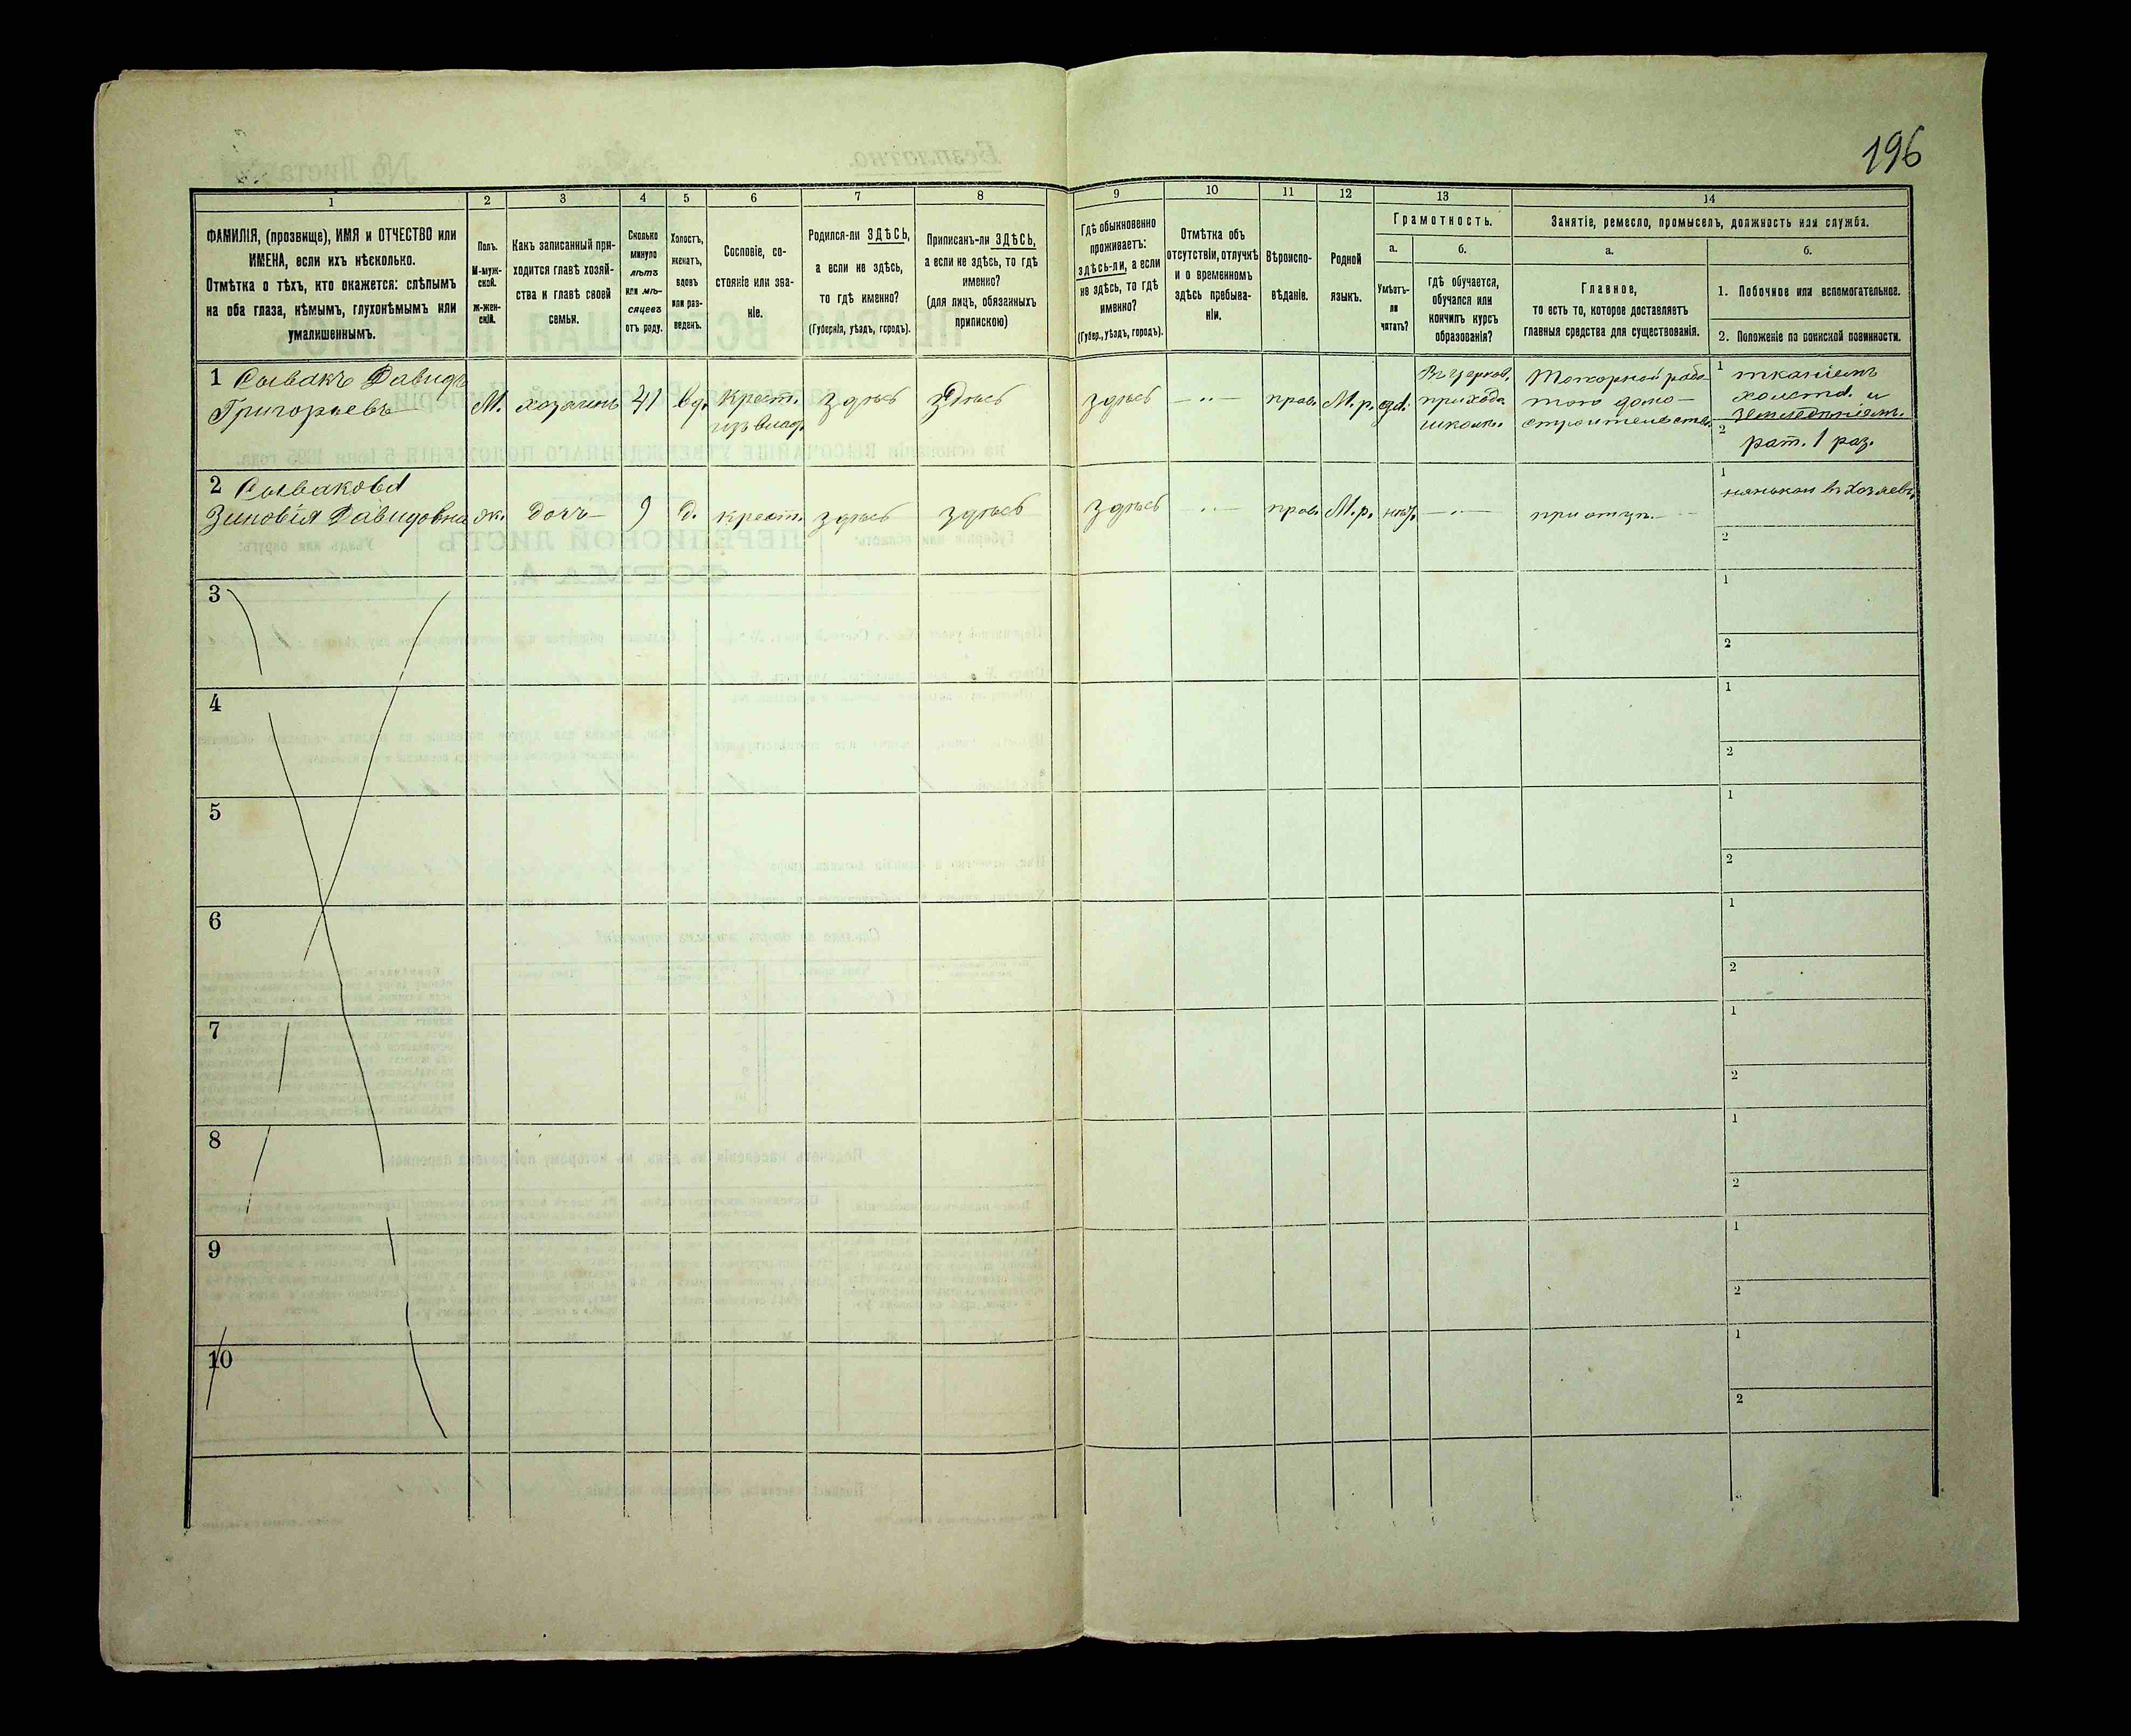 196
1
2
3
4
5
6
7
8
9
10
11
12
13
14
ФАМИЛІЯ, (прозвище), ИМЯ и ОТЧЕСТВО или
ИМЕНА, если ихъ нѣсколько.
Отмѣтка о тѣхъ, кто окажется: слѣпымъ
на оба глаза, нѣмымъ, глухонѣмымъ или
умалишеннымъ.
Полъ.
М-муж-
ской.
ж-жен-
скій.
Какъ записанный при-
ходится главѣ хозяй-
ства и главѣ своей
семьи.
Сколько
минуло
лѣтъ
или мѣ-
сяцевъ
отъ роду.
Холостъ,
женатъ,
вдовъ
или раз-
веденъ.
Сословіе, со-
стояніе или зва-
ніе.
Родился-ли ЗДѢСЬ,
а если не здѣсь,
то гдѣ именно?
(Губернія, уѣздъ, городъ).
Приписанъ-ли ЗДѢСЬ,
а если не здѣсь, то гдѣ
именно?
(для лицъ, обязанныхъ
припискою)
Гдѣ обыкновенно
проживаетъ:
здѣсь-ли, а если
не здѣсь, то гдѣ
именно?
(Губер., уѣздъ, городъ).
Отмѣтка объ
отсутствіи, отлучкѣ
и о временномъ
здѣсь пребыва-
ніи.
Вѣроиспо-
вѣданіе.
Родной
языкъ.
Грамотность.
а.
б.
Умѣетъ-
ли
читать?
гдѣ обучается,
обучался или
кончилъ курсъ
образованія?
Занятіе, ремесло, промыселъ, должность или служба.
а.
б.
Главное,
то есть то, которое доставляетъ
главныя средства для существованія.
1. Побочное или вспомогательное.
2. Положеніе по воинской повинности.
1 Сывакъ Давидъ
Григорьевъ
М.
хозяинъ
41
вд.
Крест.
изъ влад.
Здѣсь
Здѣсь
Здѣсь
— „ —
прав.
М.р.
Въ церков.
приход.
школѣ.
Топорной рабо
того домо-
строительства
1 тканіемъ
холста и
земледѣліемъ.
2
рат. 1 раз.
2 Сывакова
Зиновія Давидовна
ж.
дочь
9
д.
крест.
здѣсь
здѣсь
Здѣсь
— „ —
прав.
М.р.
нѣтъ
— „ —
при отцѣ
1
нянькой
2
3
1
2
4
1
2
5
1
2
6
1
2
7
1
2
8
1
2
9
1
2
10
1
2